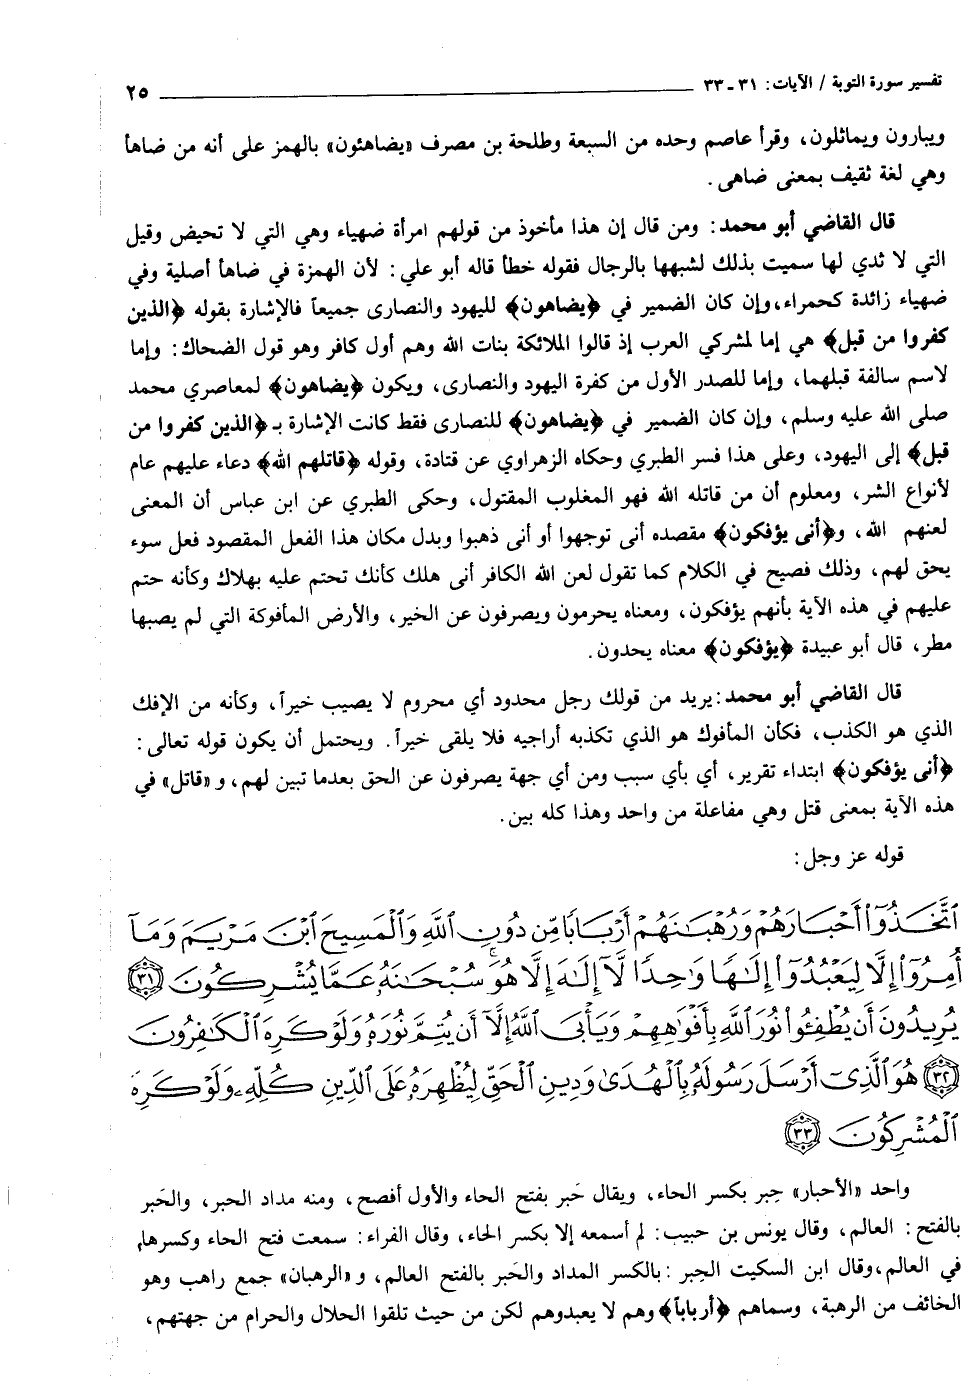 تفسير سورة التوبة / الآيات: ٣١ ـ ٣٣ ٢٥
ويبارون ويماثلون، وقرأ عاصم وحده من السبعة وطلحة بن مصرف «يضاهئون» بالهمز على أنه من ضاهأ
وهي لغة ثقيف بمعنى ضاهى.
قال القاضي أبو محمد: ومن قال إن هذا مأخوذ من قولهم امرأة ضهياء وهي التي لا تحيض وقيل
التي لا ثدي لها سميت بذلك لشبهها بالرجال فقوله خطأ قاله أبو علي: لأن الهمزة في ضاهأ أصلية وفي
ضهياء زائدة كحمراء، وإن كان الضمير في ﴿يضاهون﴾ لليهود والنصارى جميعاً فالإشارة بقوله ﴿الذين
كفروا من قبل﴾ هي إما لمشركي العرب إذ قالوا الملائكة بنات الله وهم أول كافر وهو قول الضحاك: وإما
لاسم سالفة قبلهما، وإما للصدر الأول من كفرة اليهود والنصارى، ويكون ﴿يضاهون﴾ لمعاصري محمد
صلى الله عليه وسلم، وإن كان الضمير في ﴿يضاهون﴾ للنصارى فقط كانت الإشارة بـ ﴿الذين كفروا من
قبل﴾ إلى اليهود، وعلى هذا فسر الطبري وحكاه الزهراوي عن قتادة، وقوله ﴿قاتلهم الله﴾ دعاء عليهم عام
لأنواع الشر، ومعلوم أن من قاتله الله فهو المغلوب المقتول، وحكى الطبري عن ابن عباس أن المعنى
لعنهم الله، و﴿أنى يؤفكون﴾ مقصده أنى توجهوا أو أنى ذهبوا وبدل مكان هذا الفعل المقصود فعل سوء
يحق لهم، وذلك فصيح في الكلام كما تقول لعن الله الكافر أنى هلك كأنك تحتم عليه بهلاك وكأنه حتم
عليهم في هذه الآية بأنهم يؤفكون، ومعناه يحرمون ويصرفون عن الخير، والأرض المأفوكة التي لم يصبها
مطر، قال أبو عبيدة ﴿يؤفكون﴾ معناه يحدون.
قال القاضي أبو محمد: يريد من قولك رجل محدود أي محروم لا يصيب خيراً، وكأنه من الإفك
الذي هو الكذب، فكأن المأفوك هو الذي تكذبه أراجيه فلا يلقى خيراً. ويحتمل أن يكون قوله تعالى:
﴿أنى يؤفكون﴾ ابتداء تقرير، أي بأي سبب ومن أي جهة يصرفون عن الحق بعدما تبين لهم، و «قاتل» في
هذه الآية بمعنى قتل وهي مفاعلة من واحد وهذا كله بين.
قوله عز وجل:
ٱتَّخَذُوٓا۟ أَحْبَارَهُمْ وَرُهْبَـٰنَهُمْ أَرْبَابًا مِّن دُونِ ٱللَّهِ وَٱلْمَسِيحَ ٱبْنَ مَرْيَمَ وَمَآ
أُمِرُوٓا۟ إِلَّا لِيَعْبُدُوٓا۟ إِلَـٰهًا وَٰحِدًا لَّآ إِلَـٰهَ إِلَّا هُوَ ۚ سُبْحَـٰنَهُۥ عَمَّا يُشْرِكُونَ ﴿٣١﴾
يُرِيدُونَ أَن يُطْفِـُٔوا۟ نُورَ ٱللَّهِ بِأَفْوَٰهِهِمْ وَيَأْبَى ٱللَّهُ إِلَّآ أَن يُتِمَّ نُورَهُۥ وَلَوْ كَرِهَ ٱلْكَـٰفِرُونَ
﴿٣٢﴾ هُوَ ٱلَّذِىٓ أَرْسَلَ رَسُولَهُۥ بِٱلْهُدَىٰ وَدِينِ ٱلْحَقِّ لِيُظْهِرَهُۥ عَلَى ٱلدِّينِ كُلِّهِۦ وَلَوْ كَرِهَ
ٱلْمُشْرِكُونَ ﴿٣٣﴾
واحد «الأحبار» حِبر بكسر الحاء، ويقال حَبر بفتح الحاء والأول أفصح، ومنه مداد الحبر، والحَبر
بالفتح: العالم، وقال يونس بن حبيب: لم أسمعه إلا بكسر الحاء، وقال الفراء: سمعت فتح الحاء وكسرها،
في العالم، وقال ابن السكيت الحِبر: بالكسر المداد والحَبر بالفتح العالم، و «الرهبان» جمع راهب وهو
الخائف من الرهبة، وسماهم ﴿أرباباً﴾ وهم لا يعبدوهم لكن من حيث تلقوا الحلال والحرام من جهتهم،